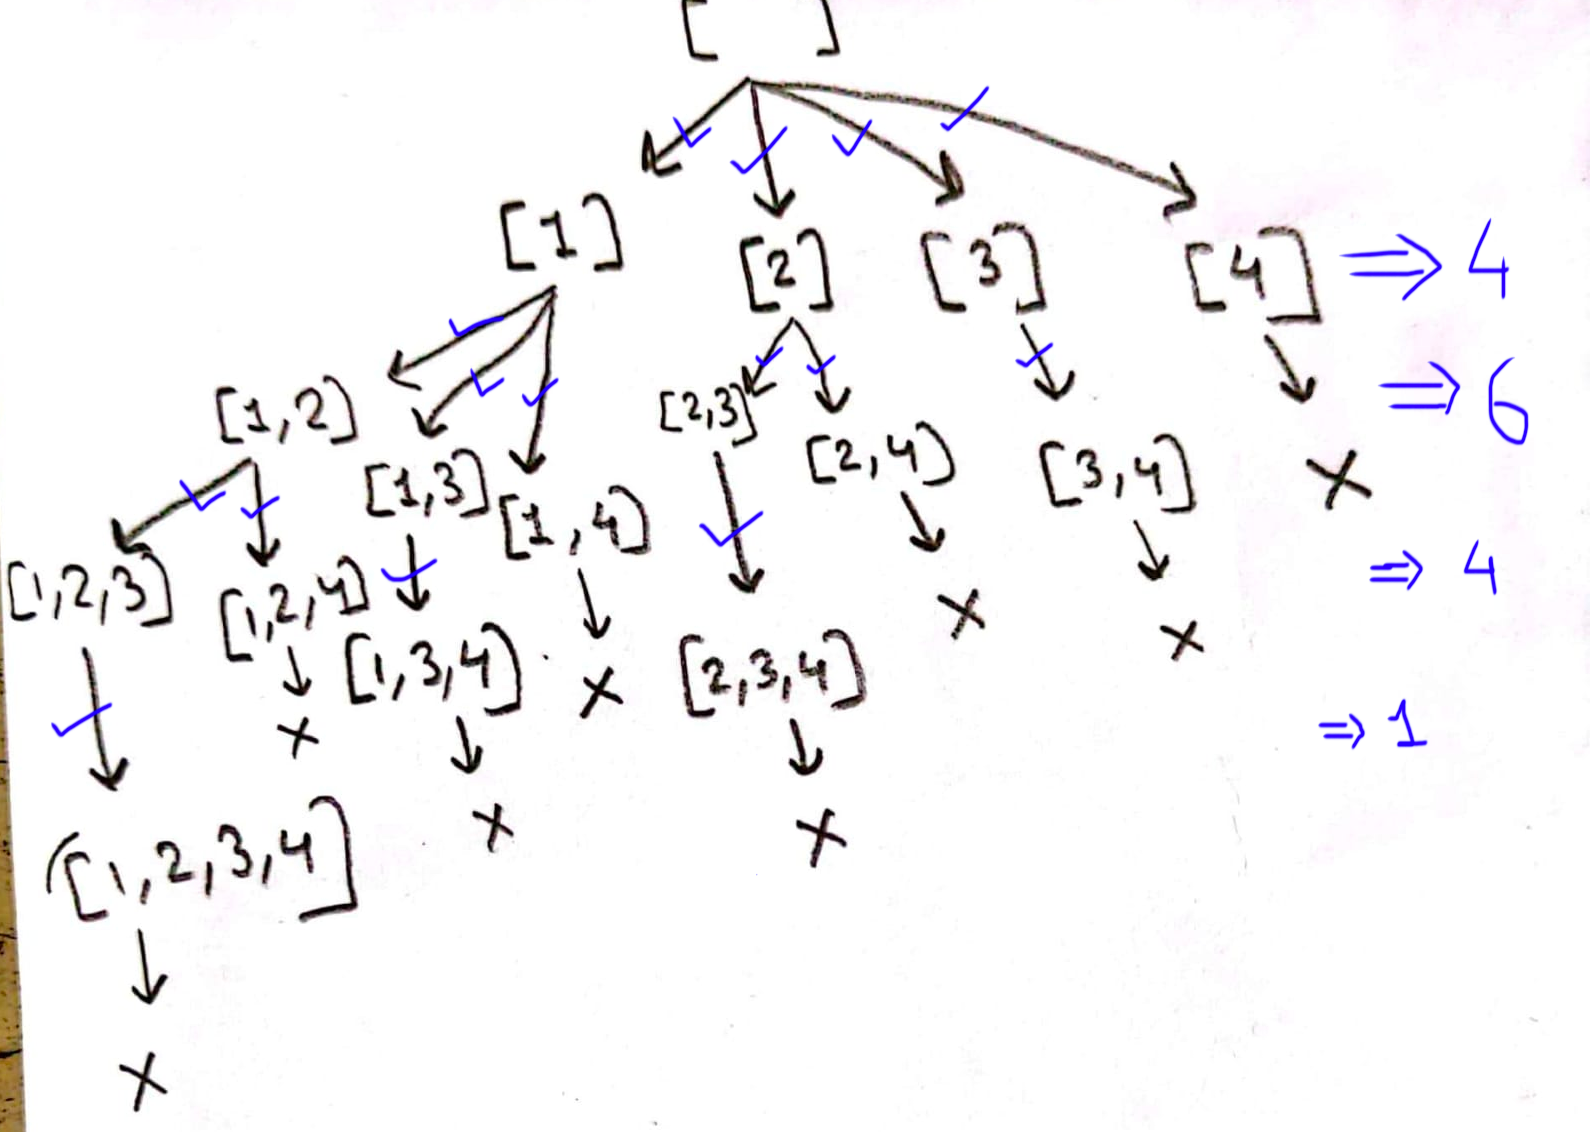 [ ]
[1] [2] [3] [4] ⇒ 4
[1,2] [1,3] [1,4] [2,3] [2,4] [3,4] X ⇒ 6
[1,2,3] [1,2,4] [1,3,4] X [2,3,4] X X ⇒ 4
X X X ⇒ 1
[1,2,3,4]
X